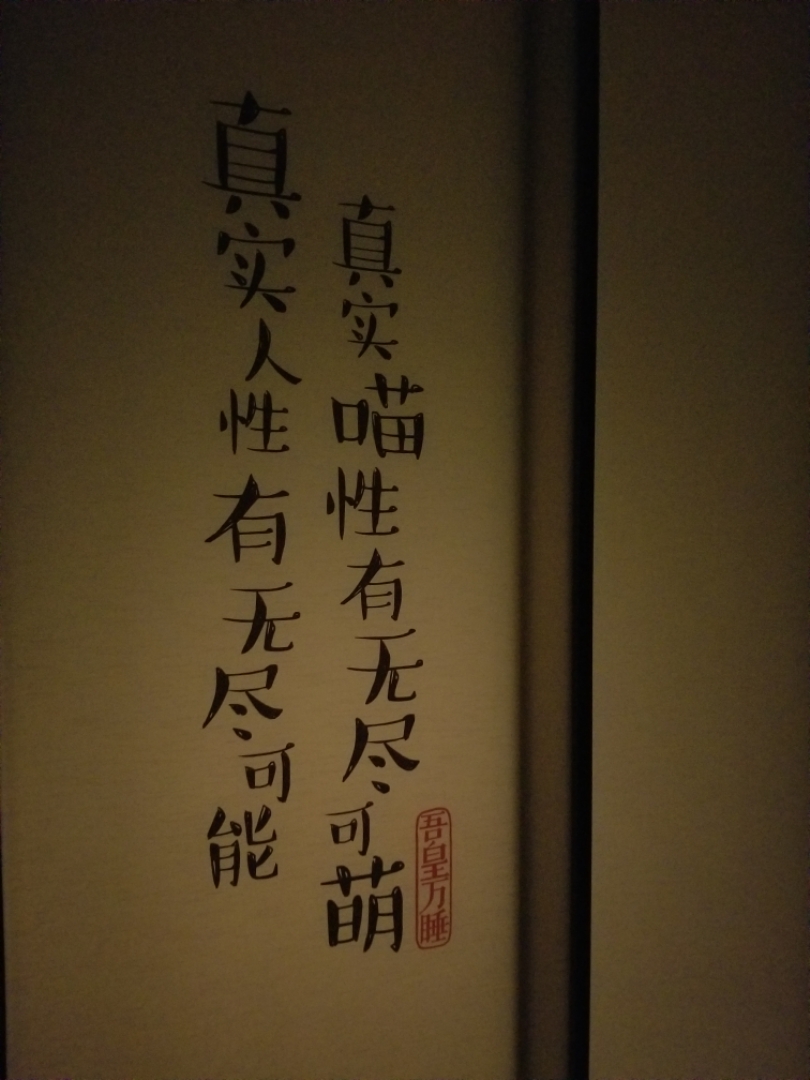 真实人性有无尽可能
真实喵性有无尽可萌
吾皇万睡